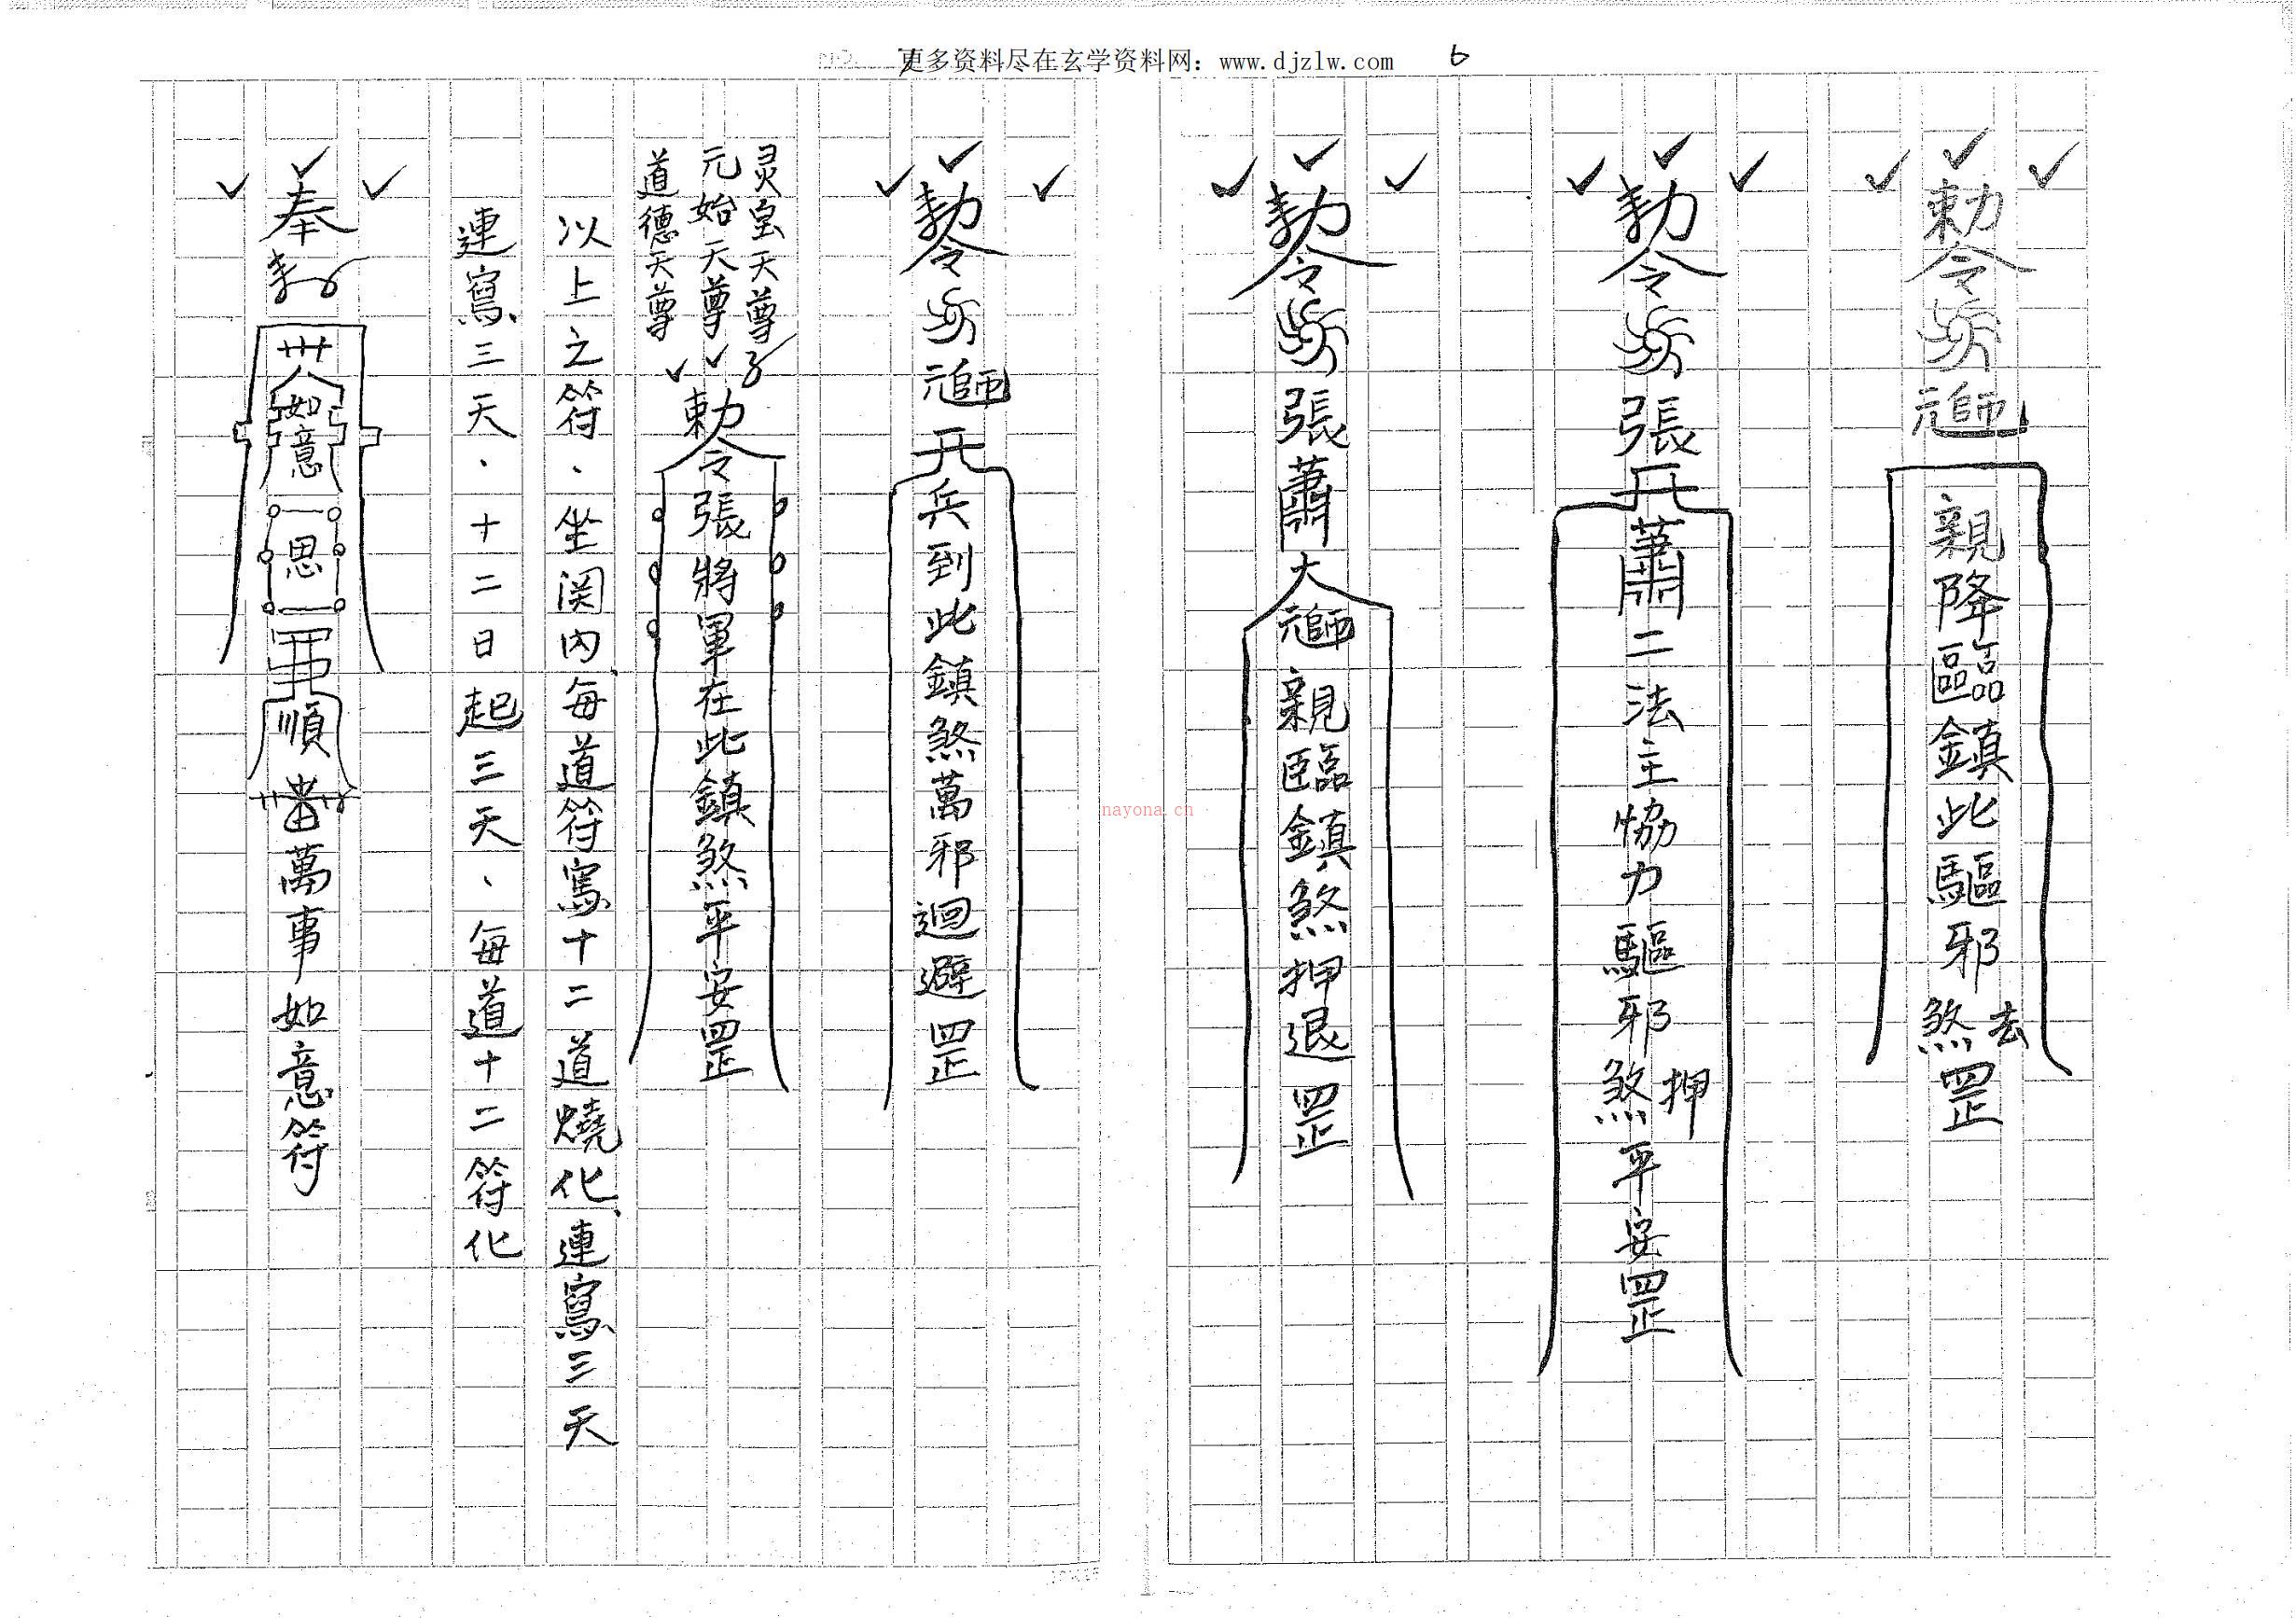 更多资料尽在玄学资料网：www.djzlw.com
6
勅令元帥親降臨鎮此驅邪煞去罡
勅令張蕭二法主協力驅邪煞押平安罡
勅令張蕭大元帥親臨鎮煞押退罡
勅令元帥兵到此鎮煞萬邪迴避罡
灵宝天尊
元始天尊
道德天尊
勅令張將軍在此鎮煞平安罡
以上之符、坐関內每道符寫十二道燒化、連寫三天
連寫三天、十二日起三天、每道十二符化
奉
如意
思
順
萬事如意符
nayona.cn